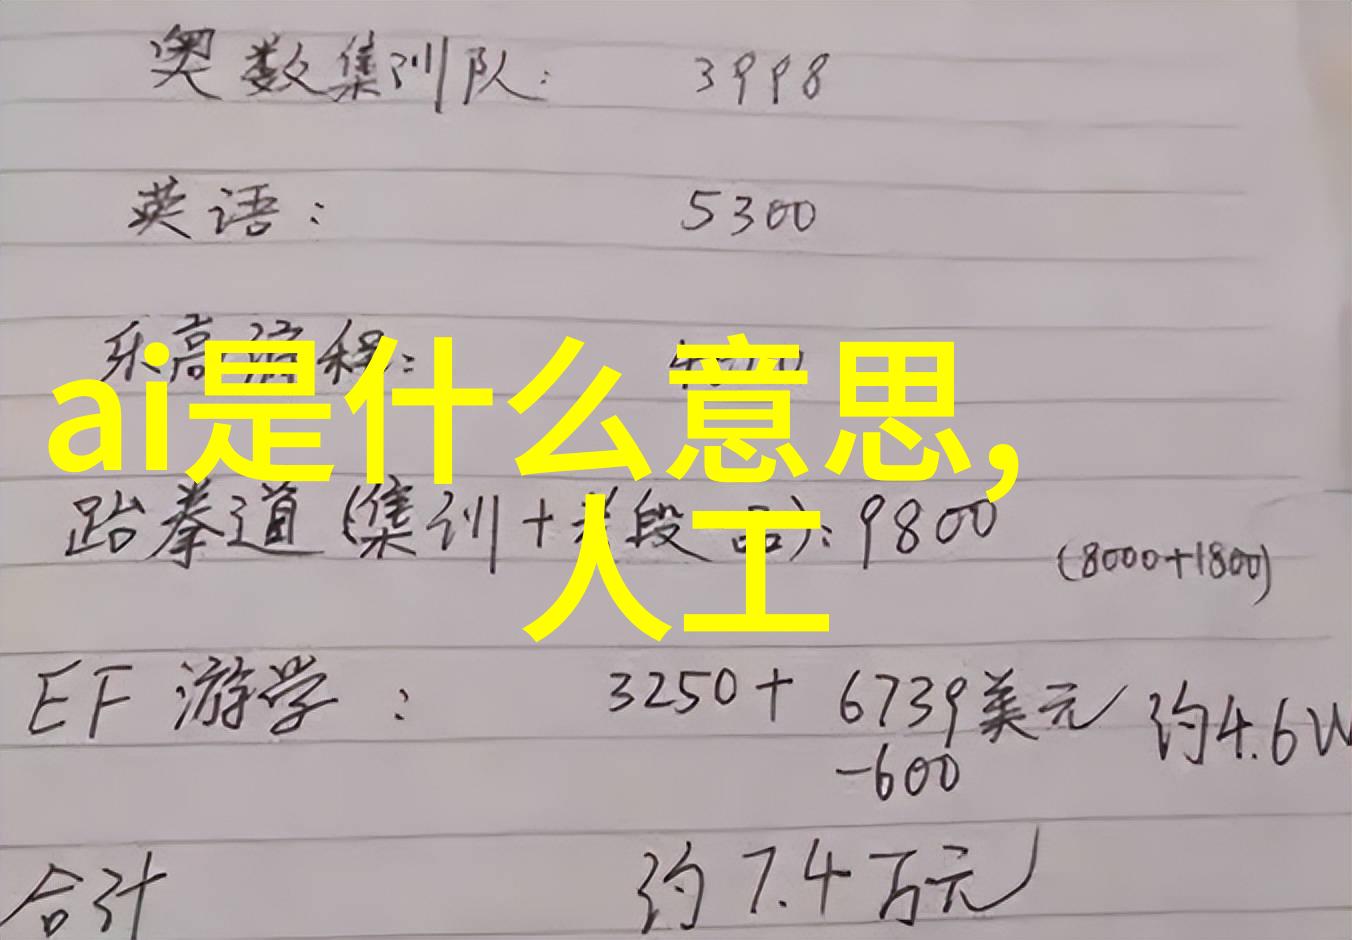 奥数集训队: 3998
英语: 5300
乐高编程:
ai是什么意思,
跆拳道(集训+考段品): 9800 (8000+1800)
人工
EF 游学: 3250+6739美元 约4.6W
-600
合计 约7.4万元